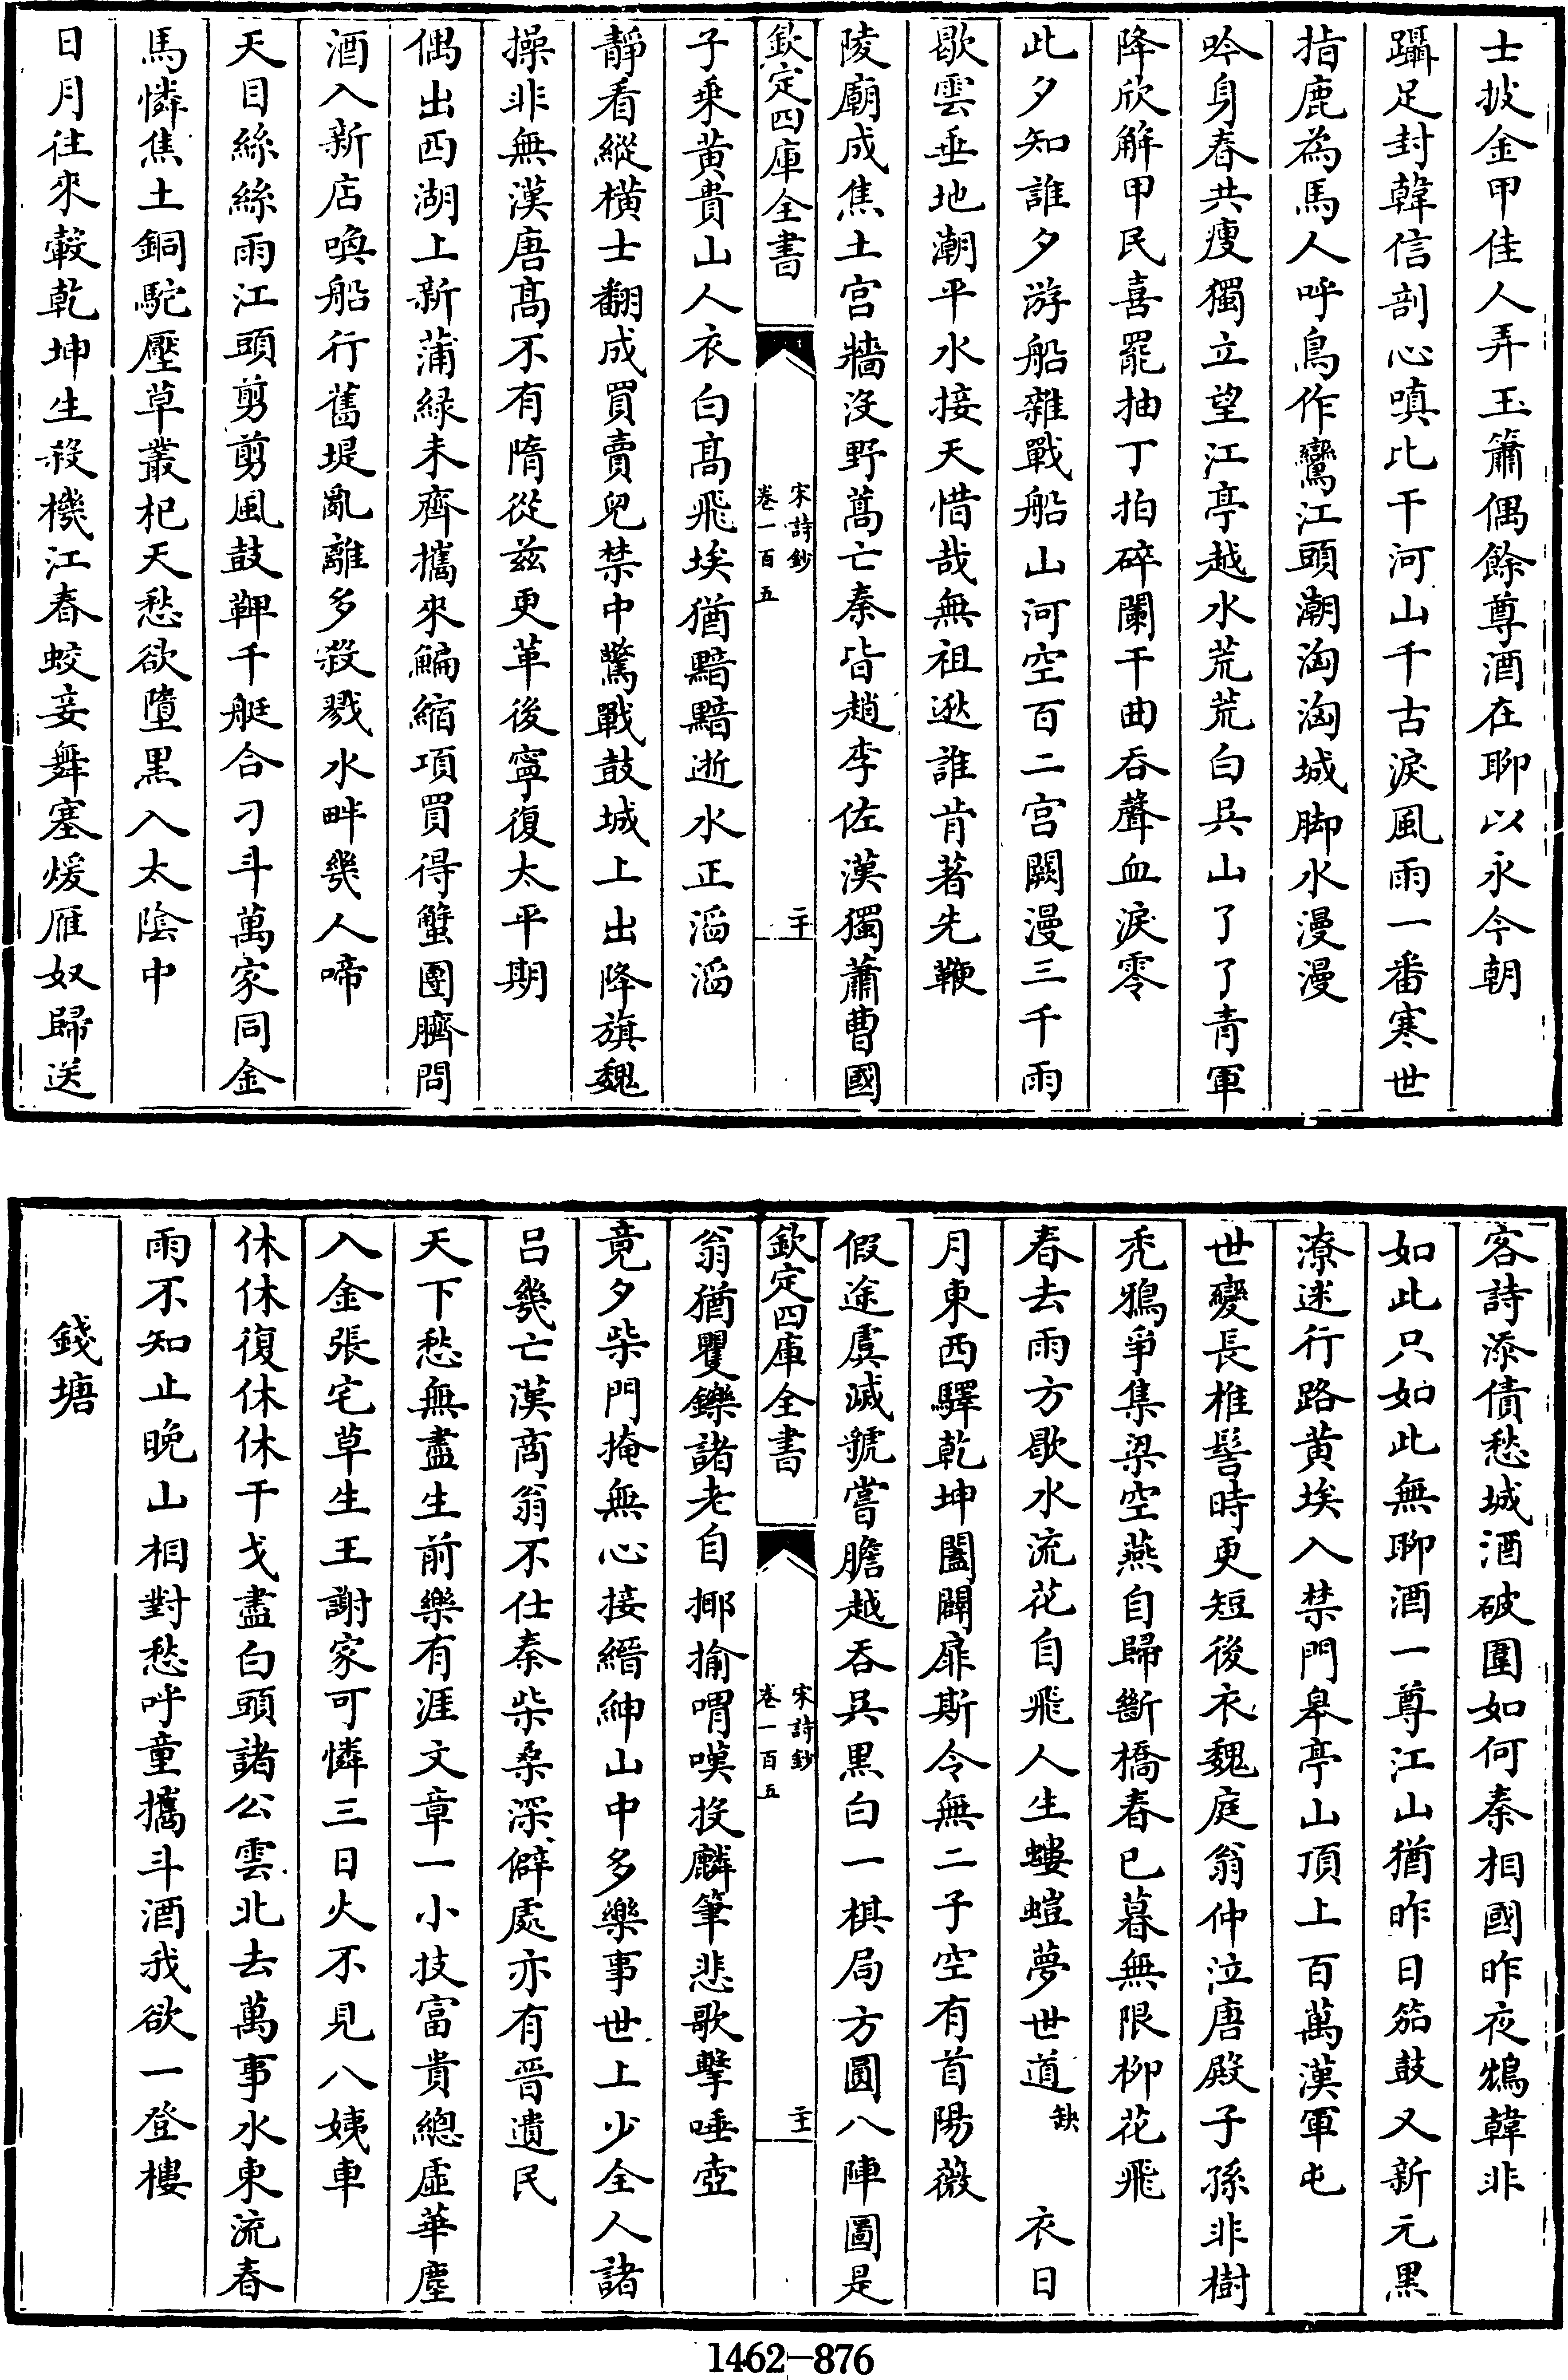 士披金甲佳人弄玉簫偶餘尊酒在聊以永今朝
躡足封韓信剖心嗔比干河山千古淚風雨一番寒世
指鹿為馬人呼鳥作鸞江頭潮洶洶城脚水漫漫
吟身春共瘦獨立望江亭越水荒荒白兵山了了青軍
降欣解甲民喜罷抽丁拍碎闌干曲吞聲血淚零
此夕知誰夕游船雜戰船山河空百二宫闕漫三千雨
歇雲垂地潮平水接天惜哉無祖逖誰肯著先鞭
陵廟成焦土宫牆沒野蒿亡秦皆趙李佐漢獨蕭曹國
欽定四庫全書
宋詩鈔
卷一百五
二十
子乘黄貴山人衣白髙飛埃猶黯黯逝水正滔滔
靜看縱橫士翻成買賣兒禁中驚戰鼓城上出降旗魏
操非無漢唐髙不有隋從兹更革後寧復太平期
偶出西湖上新蒲緑未齊攜來鯿縮項買得蟹團臍問
酒入新店喚船行舊堤亂離多殺戮水畔幾人啼
天目絲絲雨江頭剪剪風鼓鞞千艇合刁斗萬家同金
馬憐焦土銅駝壓草叢杞天愁欲墮黒入太陰中
日月往來轂乾坤生殺機江春蛟妾舞塞煖雁奴歸送
客詩添債愁城酒破圍如何秦相國昨夜鴆韓非
如此只如此無聊酒一尊江山猶昨日笳鼓又新元黒
潦迷行路黄埃入禁門皋亭山頂上百萬漢軍屯
世變長椎髻時更短後衣魏庭翁仲泣唐殿子孫非樹
秃鴉爭集梁空燕自歸斷橋春已暮無限柳花飛
春去雨方歇水流花自飛人生螻螘夢世道缺 衣日
月東西驛乾坤闔闢扉斯今無二子空有首陽薇
假途虞滅虢嘗膽越吞吳黒白一棋局方圓八陣圖是
欽定四庫全書
宋詩鈔
卷一百五
二十一
翁猶矍鑠諸老自揶揄喟嘆投麟筆悲歌擊唾壺
竟夕柴門掩無心接縉紳山中多樂事世上少全人諸
吕幾亡漢商翁不仕秦柴桑深僻處亦有晉遺民
天下愁無盡生前樂有涯文章一小技富貴總虛華塵
入金張宅草生王謝家可憐三日火不見八姨車
休休復休休干戈盡白頭諸公雲北去萬事水東流春
雨不知止晚山相對愁呼童攜斗酒我欲一登樓
錢塘
1462-876